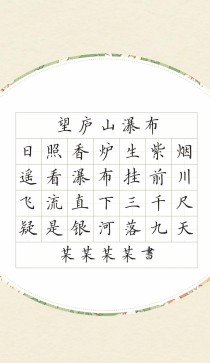 望庐山瀑布
日照香炉生紫烟
遥看瀑布挂前川
飞流直下三千尺
疑是银河落九天
某某某某書